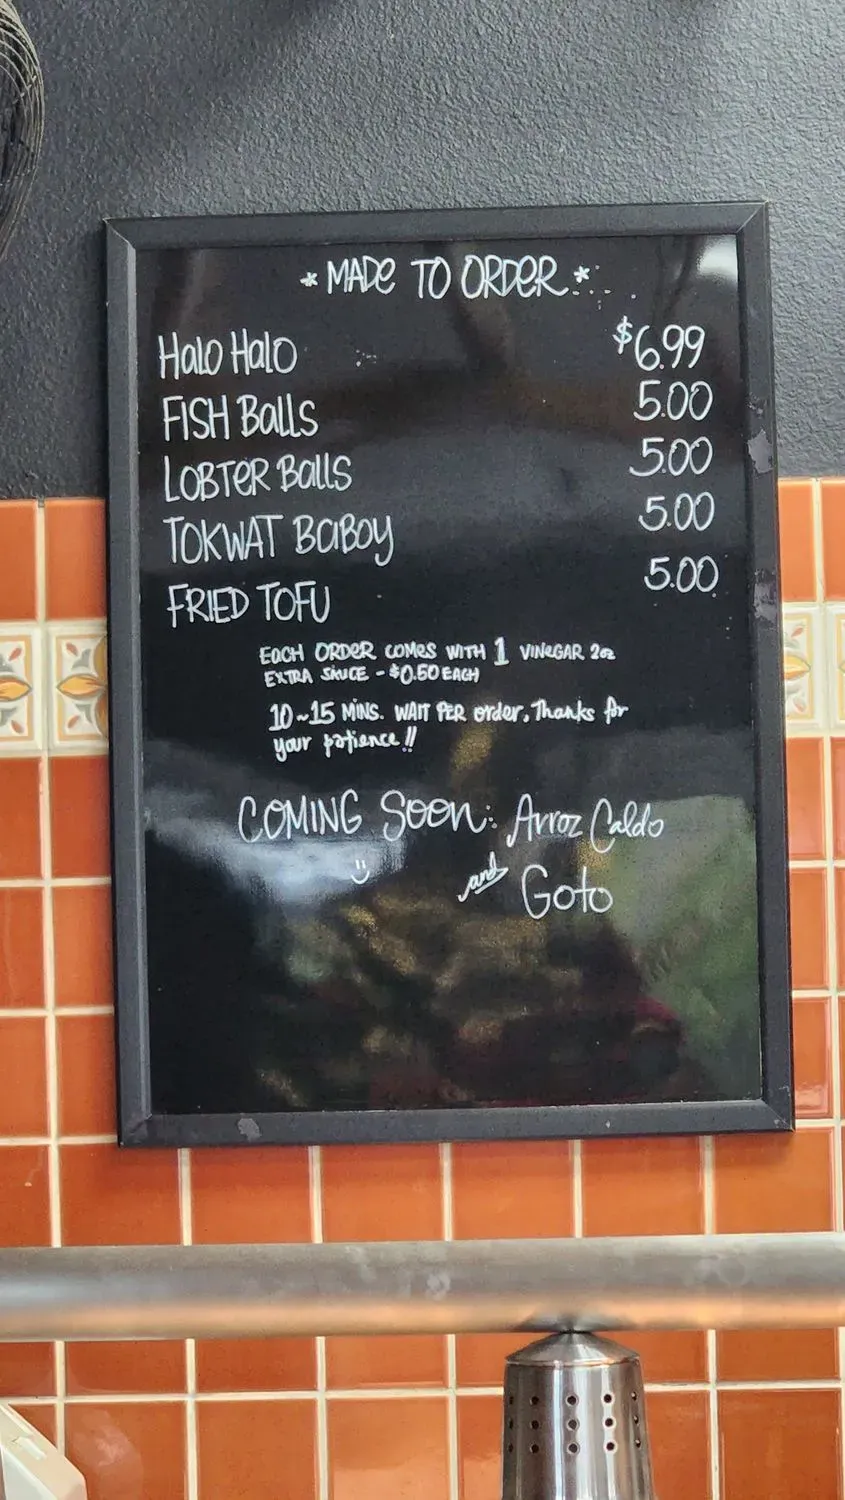 * MADE TO ORDER *
Halo Halo $6.99
FISH Balls 5.00
LOBTER Balls 5.00
TOKWAT BABOY 5.00
FRIED TOFU 5.00
EACH ORDER COMES WITH 1 VINEGAR 2oz
EXTRA SAUCE - $0.50 EACH
10~15 MINS. WAIT PER order, Thanks for
your patience!!
COMING Soon: Arroz Caldo
and Goto